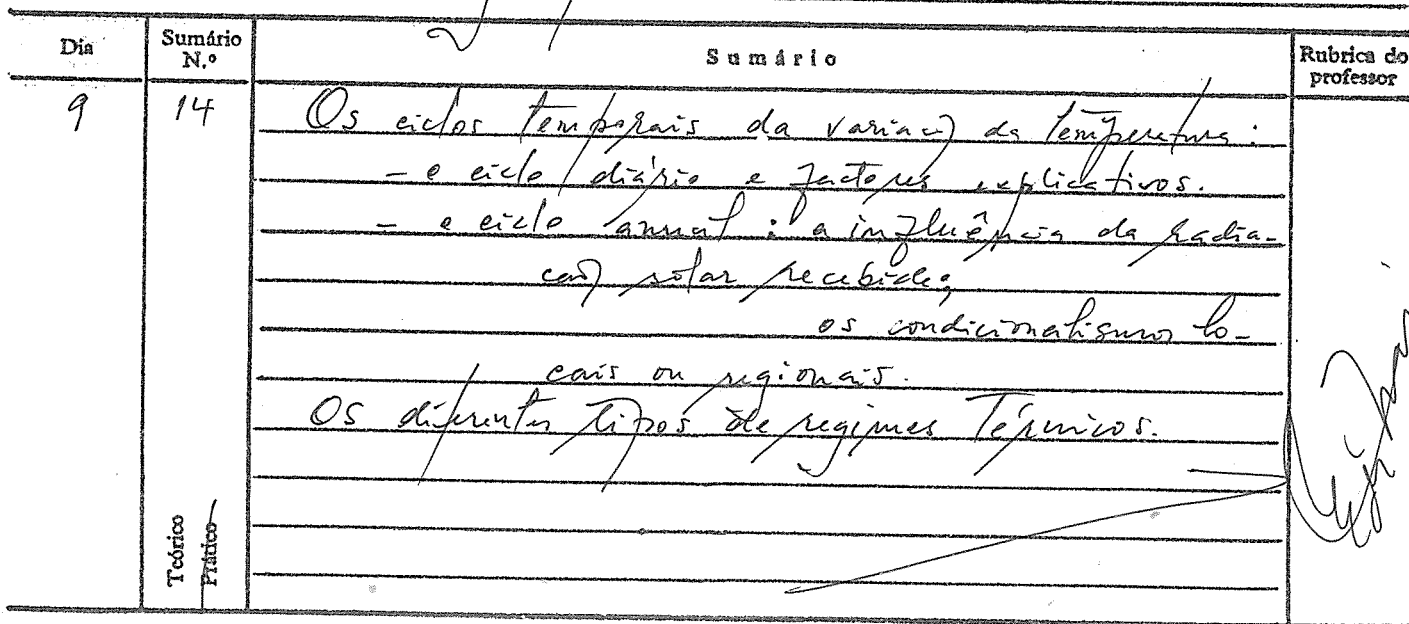 Dia Sumário N.º Sumário Rubrica do professor
9 14 Os ciclos temporais da variação da temperatura:
- o ciclo diário e factores explicativos.
- o ciclo anual: a influência da radia-
ção solar recebida;
os condicionalismos lo-
cais ou regionais.
Os diferentes tipos de regimes térmicos.
Teórico
Prático